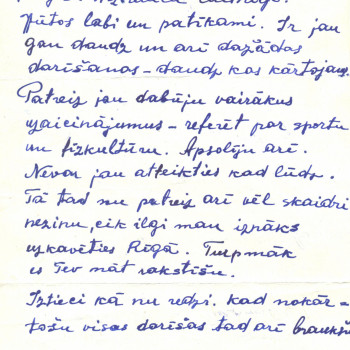 Jūtos labi un patīkami. Ir jau
gan daudz un arī dažādas
darīšanas – daudz kas kārtojams.
Patreiz jau dabūju vairākus
uzaicinājumus – referēt par sportu
un fizkultūru. Apsolīju arī.
Nevar jau atteikties kad lūdz.
Tā tad nu patreiz arī vēl skaidri
nezinu, cik ilgi man iznāks
uzkavēties Rīgā. Turpmāk
es Tev māt rakstīšu.
Iztieci kā nu redzi. Kad nokār-
tošu visas darīšas tad arī braukšu